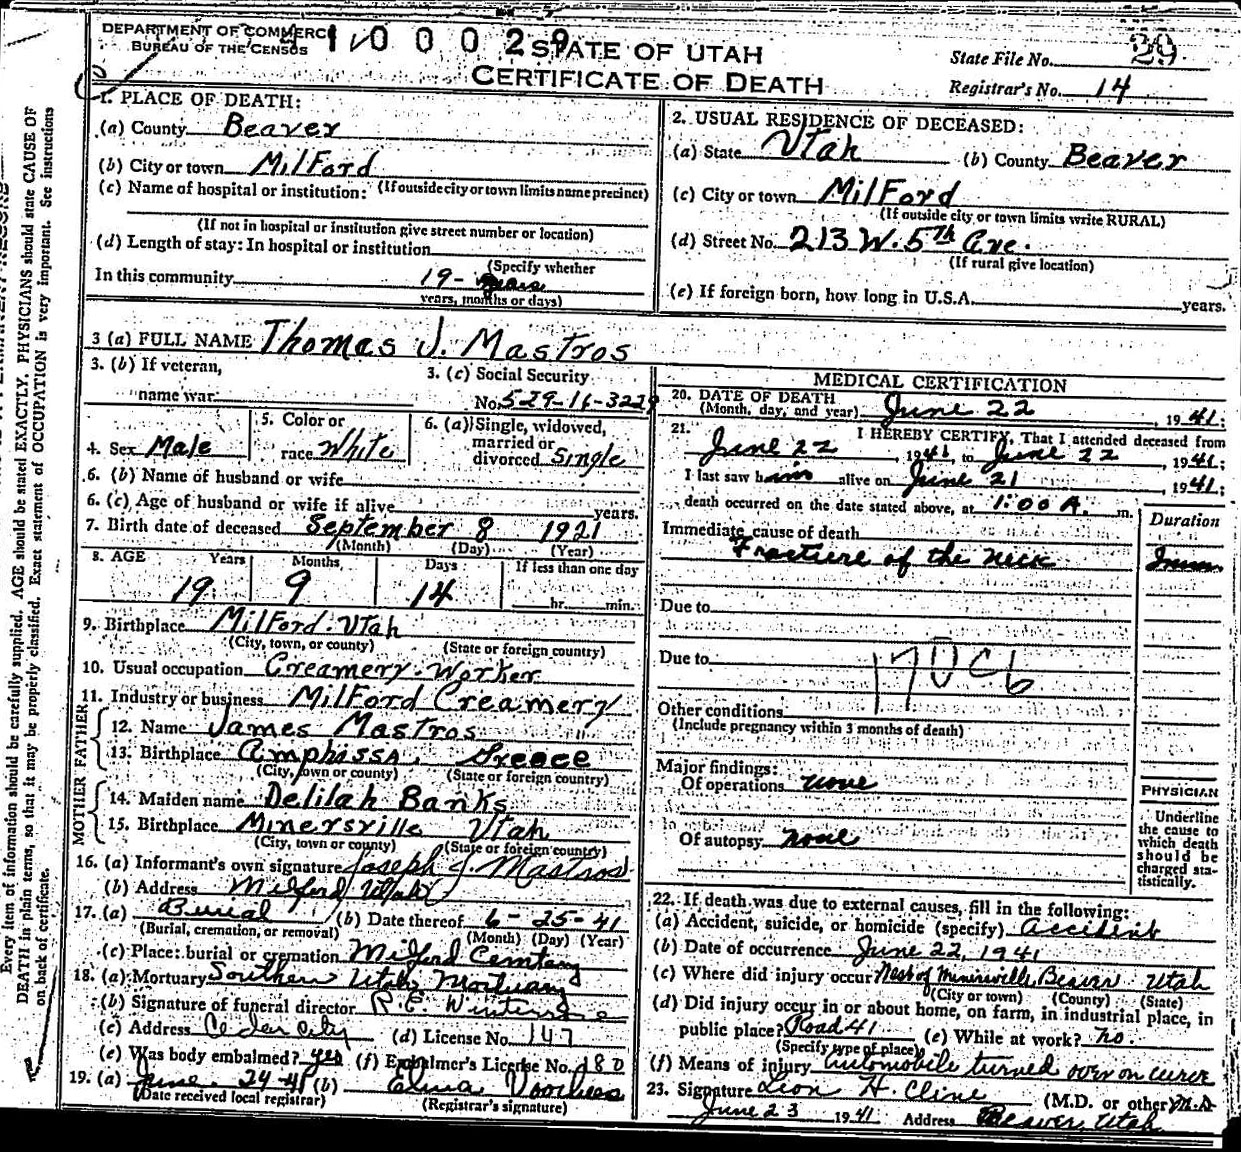 DEPARTMENT OF COMMERCE
BUREAU OF THE CENSUS
10 0 0 2 9
STATE OF UTAH
CERTIFICATE OF DEATH
State File No. 29
Registrar's No. 14
Every item of information should be carefully supplied. AGE should be stated EXACTLY. PHYSICIANS should state CAUSE OF
DEATH in plain terms, so that it may be properly classified. Exact statement of OCCUPATION is very important. See instructions
on back of certificate.
1. PLACE OF DEATH:
(a) County Beaver
(b) City or town Milford
(If outside city or town limits name precinct)
(c) Name of hospital or institution:
(If not in hospital or institution give street number or location)
(d) Length of stay: In hospital or institution
(Specify whether
In this community 19- years
years, months or days)
2. USUAL RESIDENCE OF DECEASED:
(a) State Utah (b) County Beaver
(c) City or town Milford
(If outside city or town limits write RURAL)
(d) Street No. 213 W. 5th Ave.
(If rural give location)
(e) If foreign born, how long in U.S.A. years.
3 (a) FULL NAME Thomas J. Mastros
3. (b) If veteran,
name war
3. (c) Social Security
No. 529-16-3229
4. Sex Male
5. Color or
race White
6. (a) Single, widowed,
married or
divorced Single
6. (b) Name of husband or wife
6. (c) Age of husband or wife if alive years.
7. Birth date of deceased September 8 1921
(Month) (Day) (Year)
8. AGE Years Months Days If less than one day
19 9 14 hr. min.
9. Birthplace Milford. Utah
(City, town, or county) (State or foreign country)
10. Usual occupation Creamery Worker
11. Industry or business Milford Creamery
FATHER
12. Name James Mastros
13. Birthplace Amphissa, Greece
(City, town or county) (State or foreign country)
MOTHER
14. Maiden name Delilah Banks
15. Birthplace Minersville Utah
(City, town or county) (State or foreign country)
16. (a) Informant's own signature Joseph J. Mastros
(b) Address Milford Utah
17. (a) Burial (b) Date thereof 6-25-41
(Burial, cremation, or removal) (Month) (Day) (Year)
(c) Place: burial or cremation Milford Cemtery
18. (a) Mortuary Southern Utah Mortuary
(b) Signature of funeral director R.E. Winterrose
(c) Address Cedar City (d) License No. 147
(e) Was body embalmed? yes (f) Embalmer's License No. 180
19. (a) June. 24-41 (b) Elma Voorhees
(Date received local registrar) (Registrar's signature)
MEDICAL CERTIFICATION
20. DATE OF DEATH
(Month, day, and year) June 22, 1941;
21. I HEREBY CERTIFY, That I attended deceased from
June 22, 1941, to June 22, 1941;
I last saw him alive on June 21, 1941;
death occurred on the date stated above, at 1:00 A. m.
Duration
Immediate cause of death
Fracture of the neck Imm.
Due to
Due to
170c6
Other conditions
(Include pregnancy within 3 months of death)
Major findings:
Of operations none
Of autopsy none
PHYSICIAN
Underline
the cause to
which death
should be
charged sta-
tistically.
22. If death was due to external causes, fill in the following:
(a) Accident, suicide, or homicide (specify) Accident
(b) Date of occurrence June 22, 1941
(c) Where did injury occur West of Minersville Beaver Utah
(City or town) (County) (State)
(d) Did injury occur in or about home, on farm, in industrial place, in
public place? Road 41 (e) While at work? no.
(Specify type of place)
(f) Means of injury Automobile turned over on curve
23. Signature Leon H. Cline (M.D. or other) M.D
June 23 1941 Address Beaver, Utah